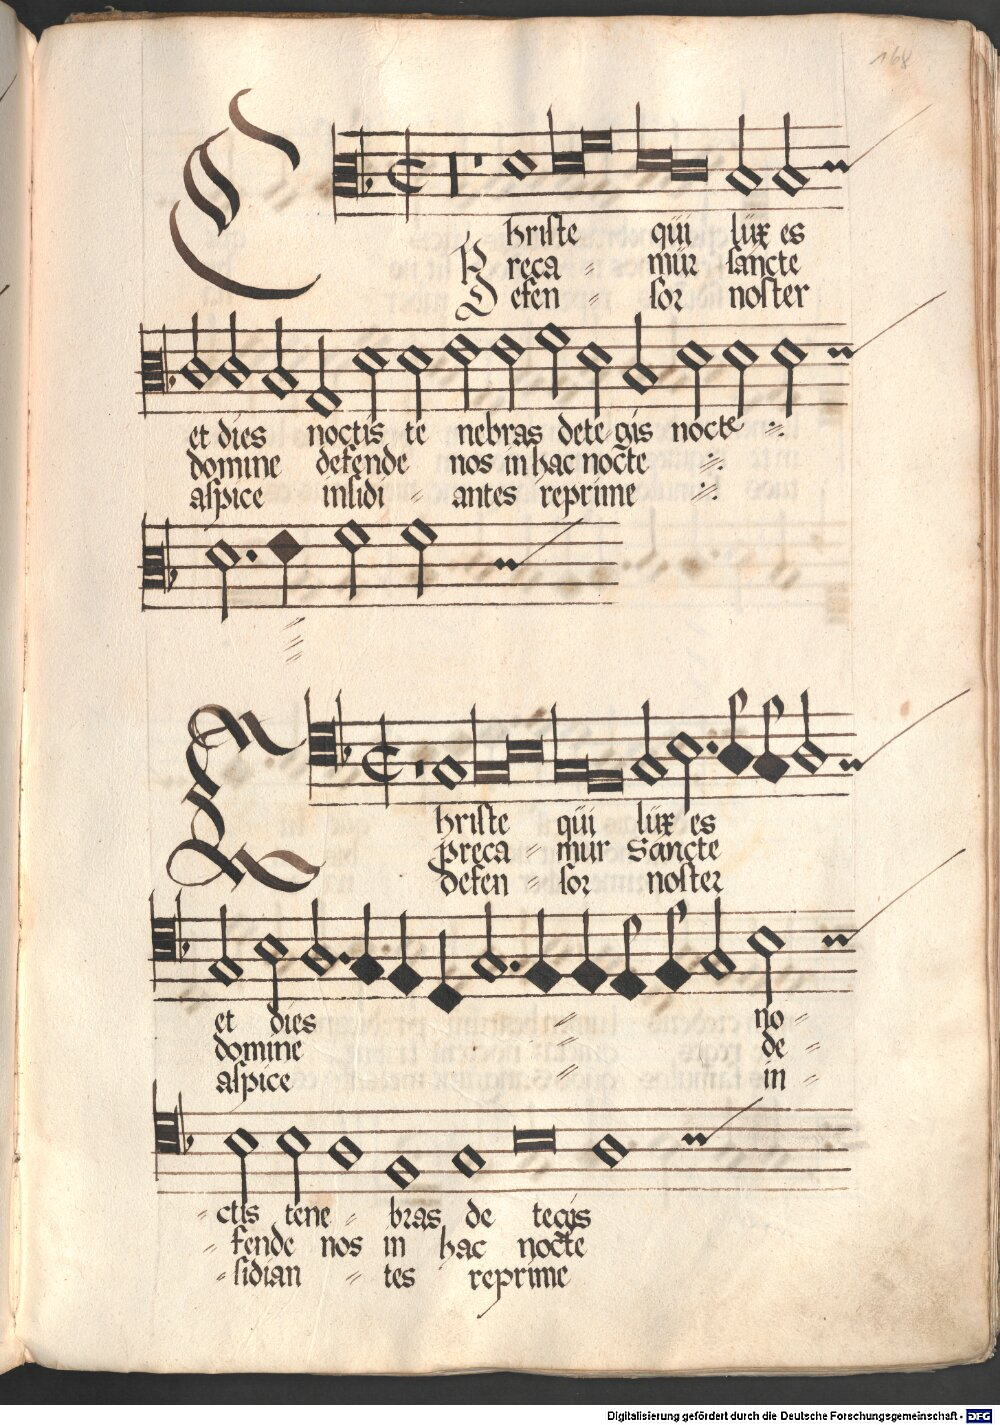 168
Christe qui lux es
Preca - mur sancte
Defen - sor noster
et dies noctis te nebras dete gis nocte
domine defende nos in hac nocte
aspice insidi - antes reprime
Christe qui lux es
preca - mur Sancte
defen - sor noster
et dies no -
domine de -
aspice in -
- ctis tene - bras de tegis
- fende nos in hac nocte
- sidian - tes reprime
Digitalisierung gefördert durch die Deutsche Forschungsgemeinschaft - DFG